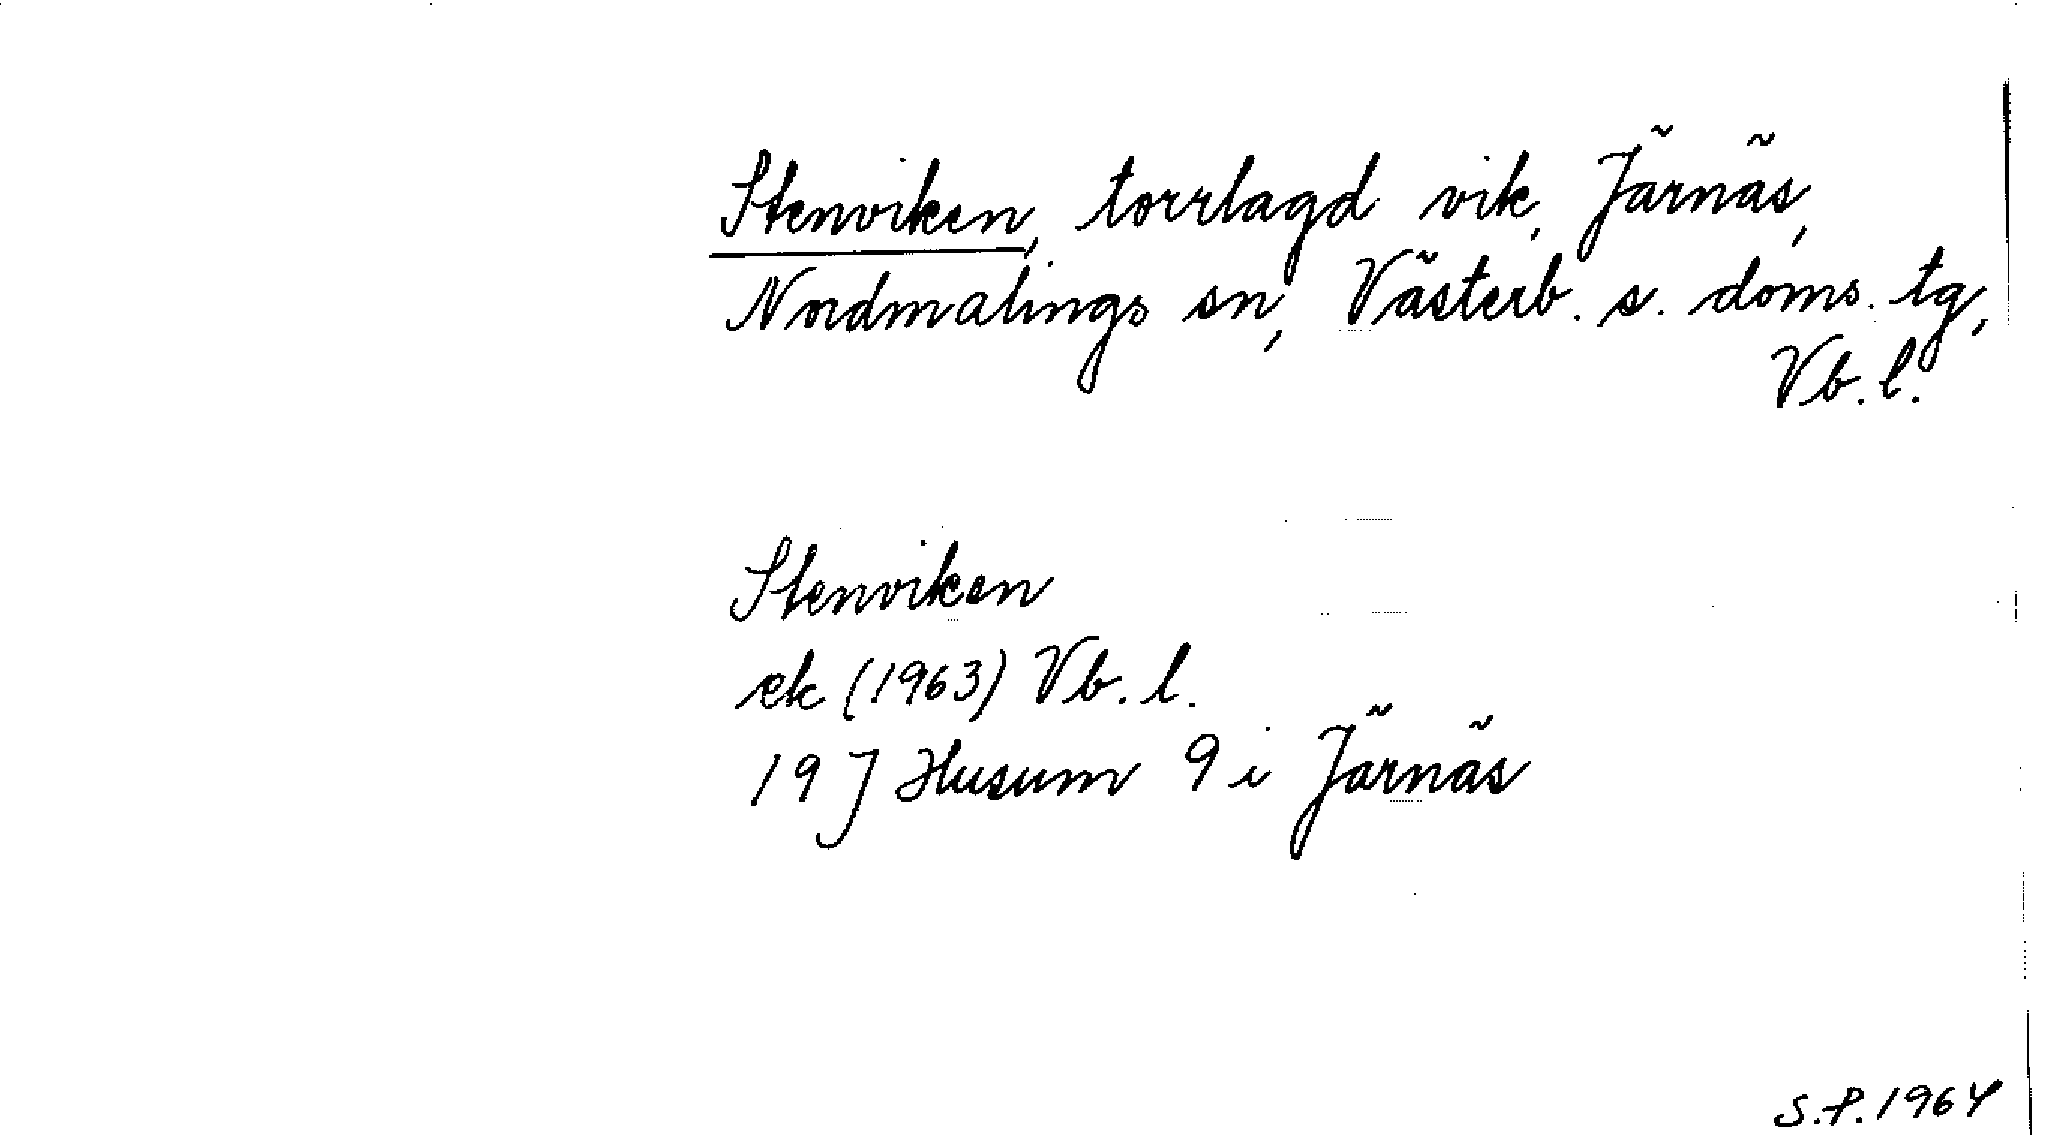 Stenviken, torrlagd vik, Järnäs,
Nordmalings sn, Västerb. s. doms. tg,
Vb. l.
Stenviken
ek (1963) Vb. l.
19 J Husum 9 i Järnäs
S.P. 1964